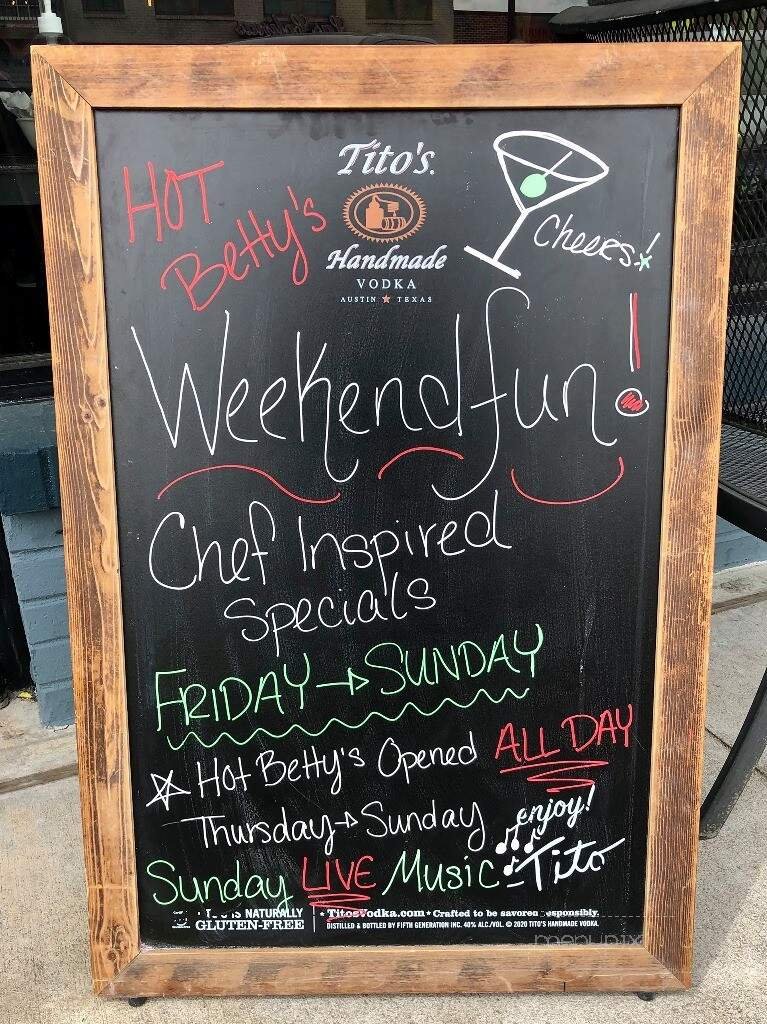 HOT
Betty's
Tito's.
Handmade
VODKA
AUSTIN ★ TEXAS
Cheers!
Weekend fun!
Chef Inspired
Specials
FRIDAY → SUNDAY
☆ Hot Betty's Opened ALL DAY
Thursday → Sunday
enjoy!
Sunday LIVE Music
-Tito
IS NATURALLY
GLUTEN-FREE
• TitosVodka.com • Crafted to be savored responsibly.
DISTILLED & BOTTLED BY FIFTH GENERATION INC. 40% ALC./VOL. © 2020 TITO'S HANDMADE VODKA.
menupix